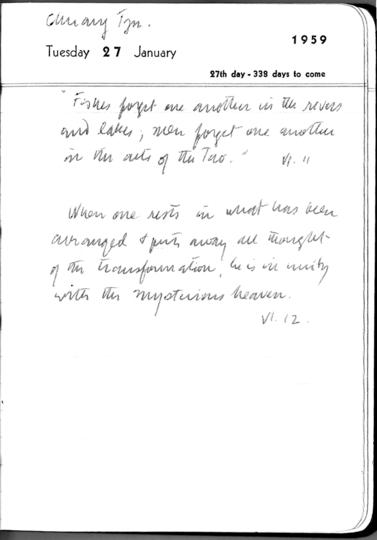 Chuang Tzu.
Tuesday 27 January
1959
27th day - 338 days to come
"Fishes forget one another in the rivers
and lakes; men forget one another
in the arts of the Tao." VI. 11
When one rests in what has been
arranged & puts away all thought
of the transformation, he is in unity
with the mysterious heaven.
VI. 12.